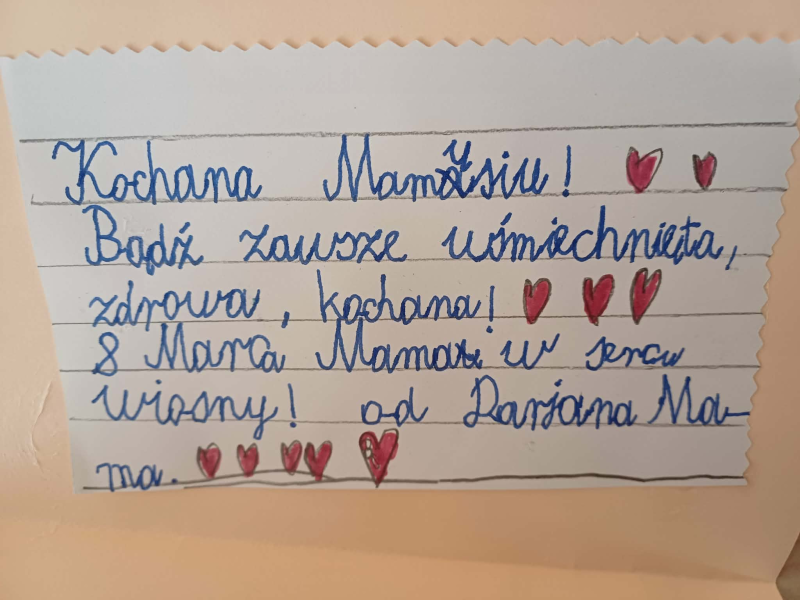 Kochana Mamusiu!
Bądź zawsze uśmiechnięta,
zdrowa, kochana!
8 Marca w sercu
wiosny! od Darjana Ma-
ma.